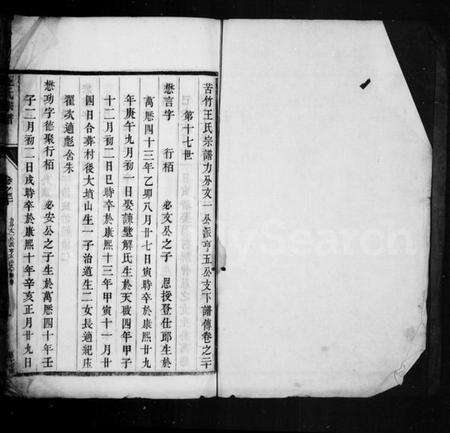 苦竹王氏宗譜力分文一公派亨五公支下譜傳卷之二
第十七世
懋言字 行栢 必文公之子 恩授登仕郎生於
萬曆四十三年乙卯八月廿七日寅時卒於康熙廿九
年庚午九月初一日娶譚璧解氏生於天啟四年甲子
十二月初二日巳時卒於康熙十三年甲寅十一月廿
四日合葬村後大墳山生一子治道生二女長適紀庄
翟次適彪舍朱
懋功字德聚行栢 必安公之子生於萬曆四十年壬
子二月初二日戌時卒於康熙十年辛亥正月廿九日